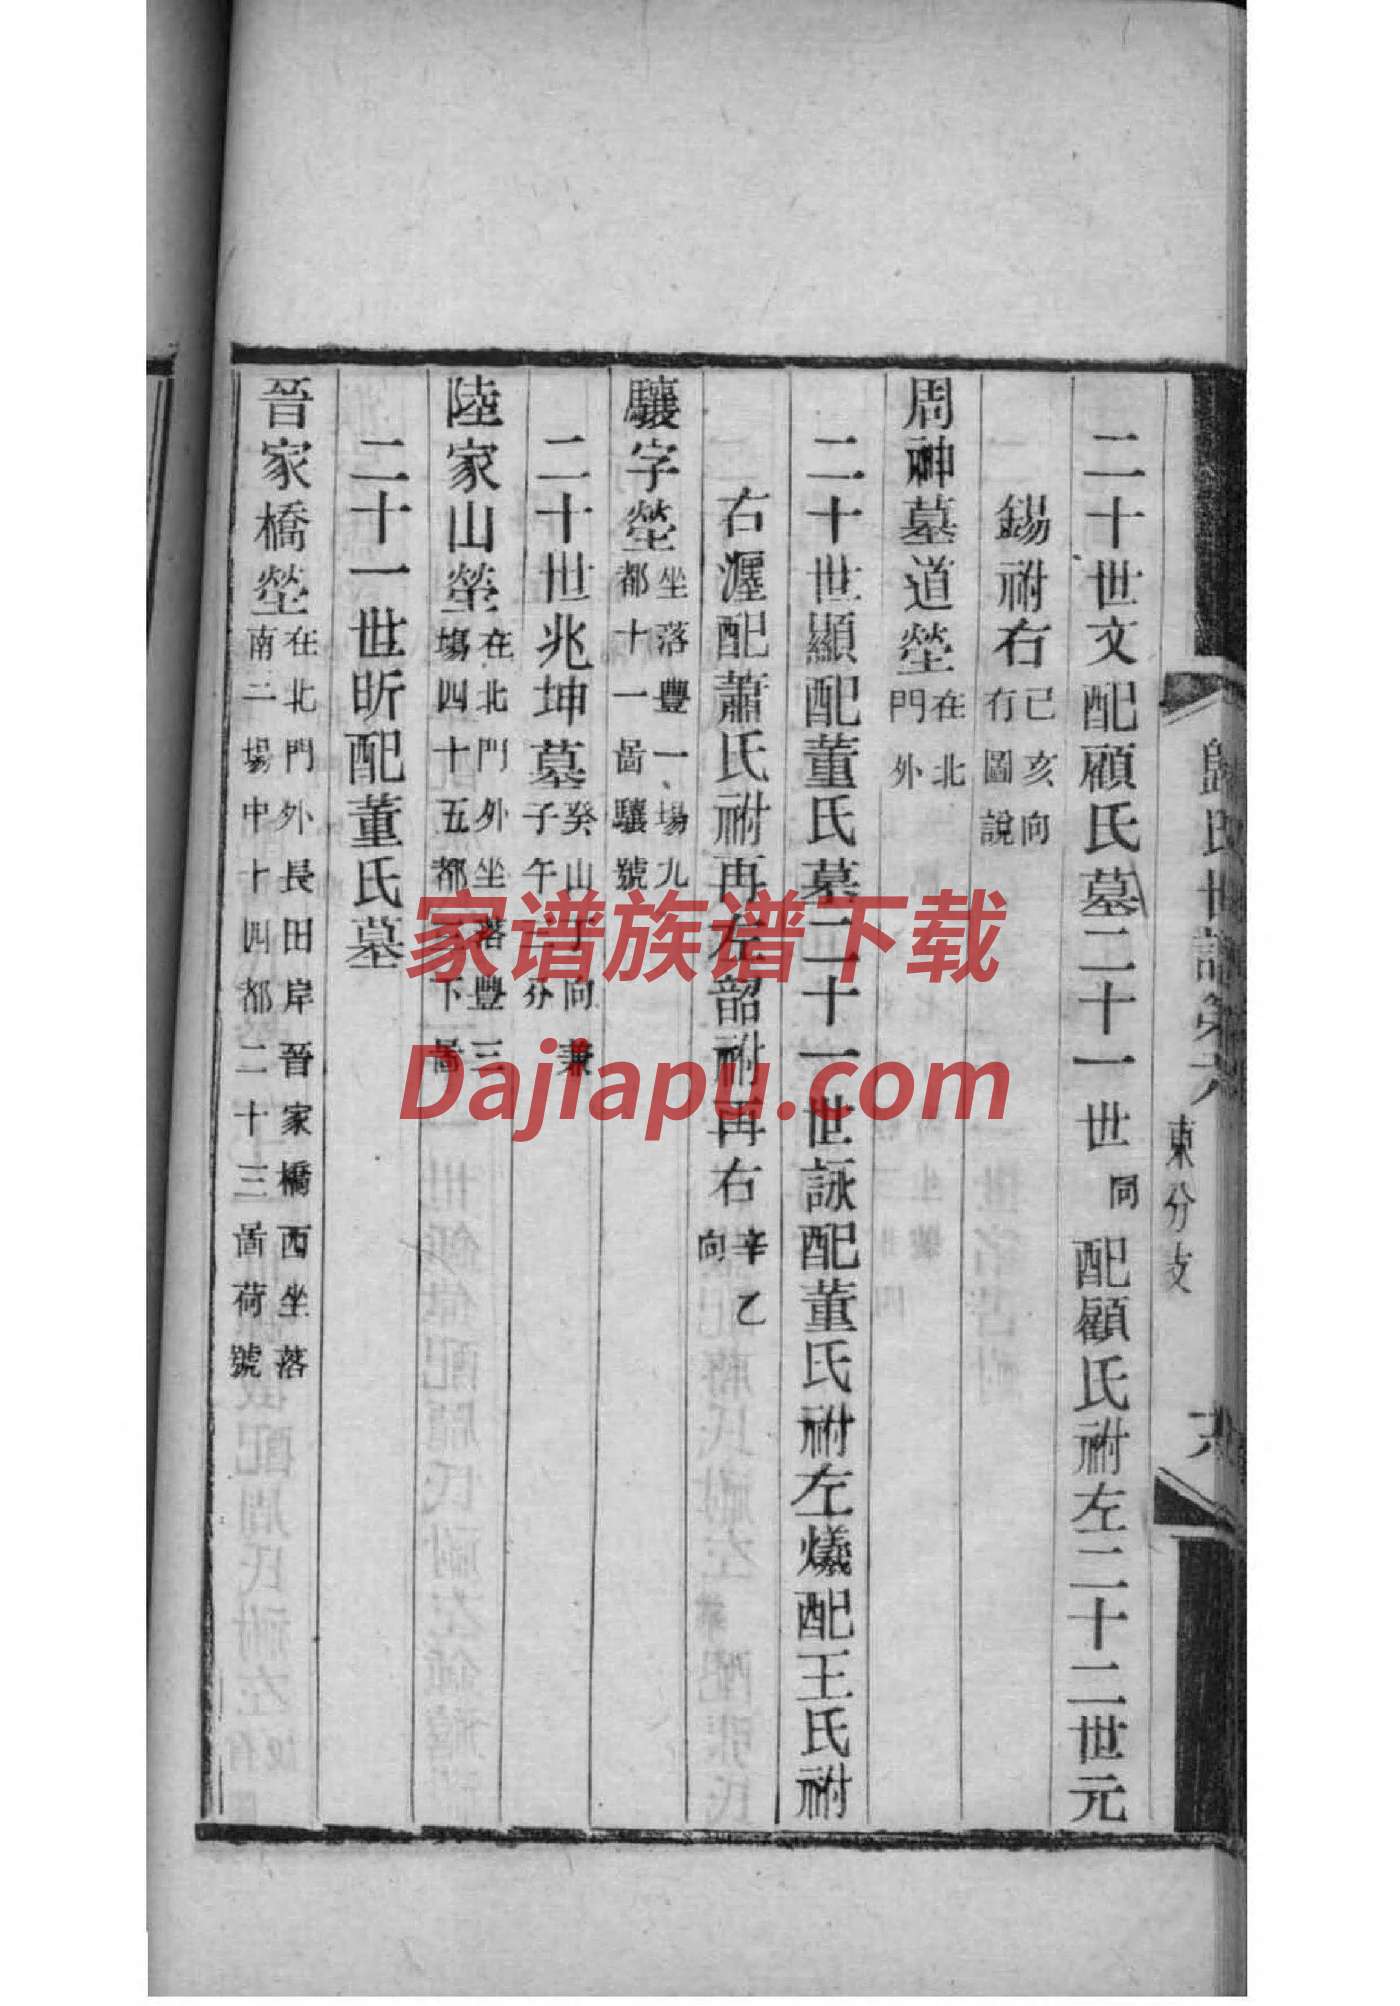 歸氏世譜 東分支
二十世文配顧氏墓二十一世同配顧氏祔左二十二世元
錫祔右 己亥向 有圖說
周神墓道塋 在北門外
二十世顯配董氏墓二十一世詠配董氏祔左爔配王氏祔
右漄配蕭氏祔再左韶祔再右 辛乙向
驤字塋 坐落豐一場九都十一啚驤號
二十世兆坤墓 癸山丁向兼子午分
陸家山塋 在北門外坐落豐三場四十五都下啚
二十一世昕配董氏墓
晉家橋塋 在北門外長田岸晉家橋西坐落南二場中十四都二十三啚荷號
家谱族谱下载
Dajiapu.com